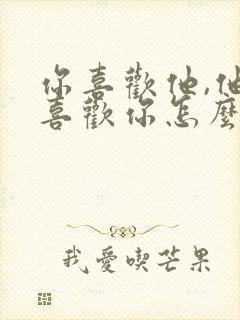 你喜歡他,他
喜歡你怎麼
我愛喫芒果